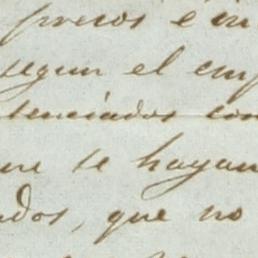 presos é in
segun el emp
tenciados con
ue se hayan
ados, que no